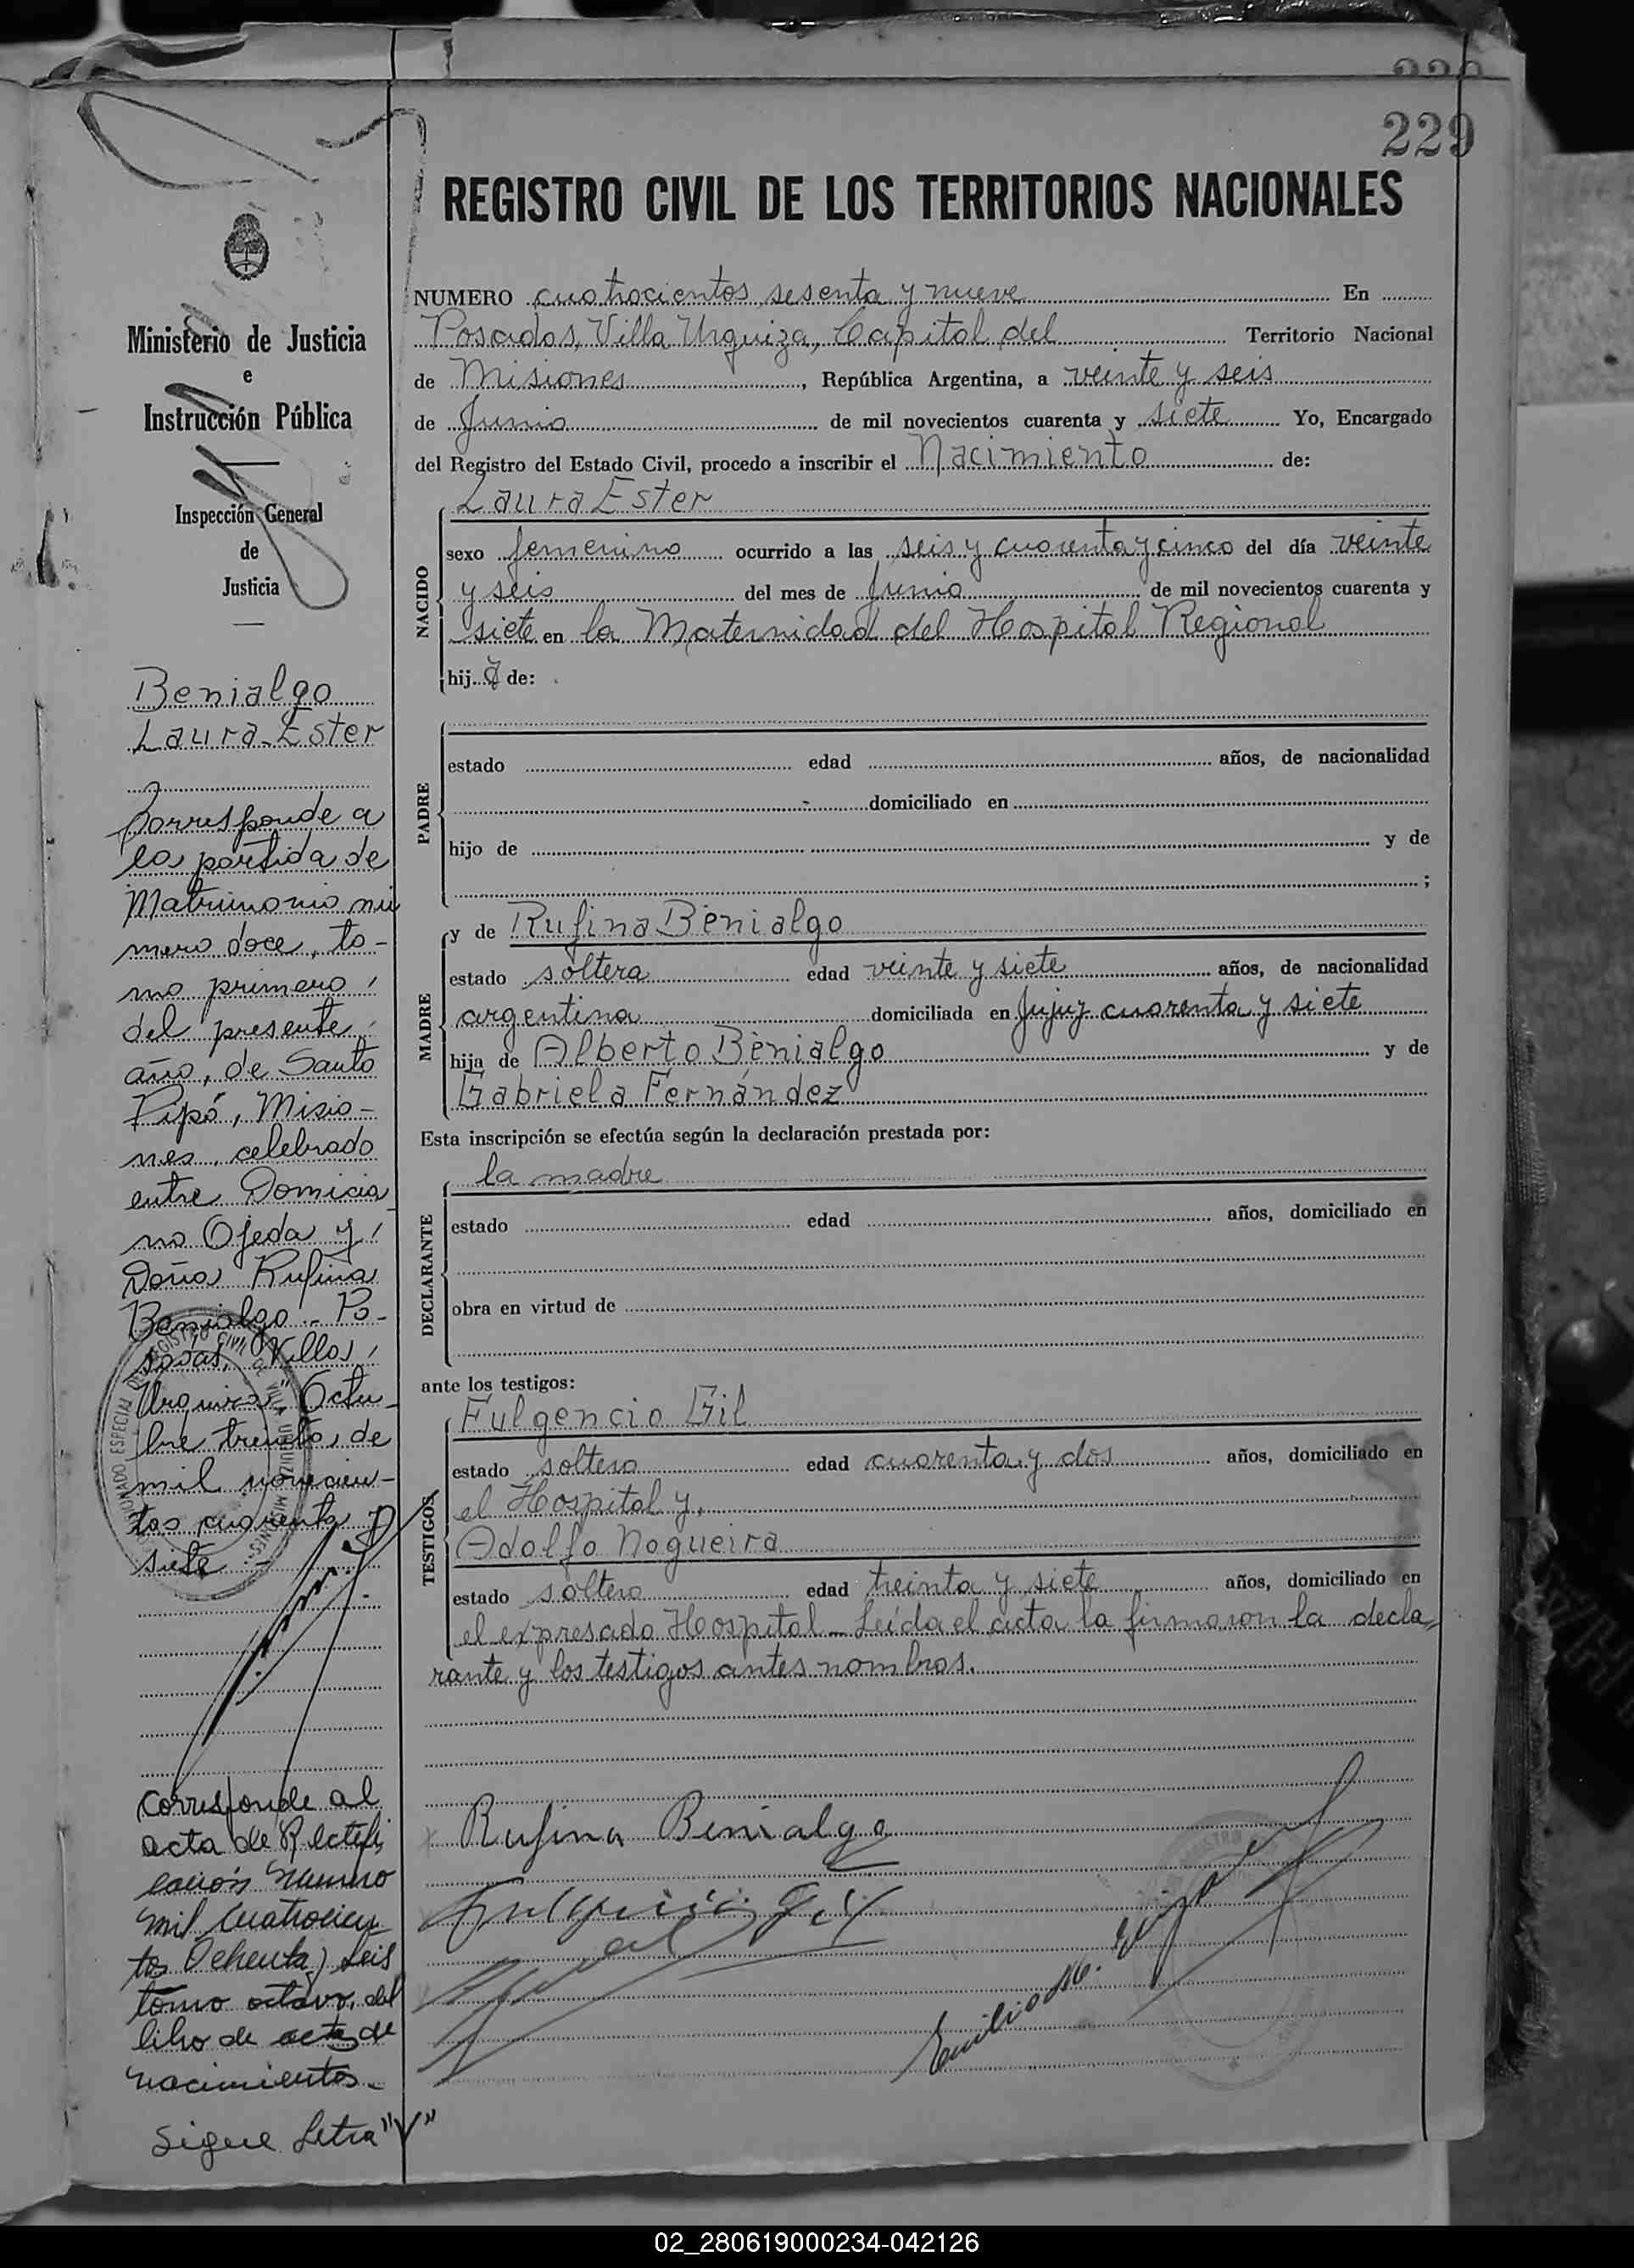 229
REGISTRO CIVIL DE LOS TERRITORIOS NACIONALES
Ministerio de Justicia
e
Instrucción Pública
Inspección General
de
Justicia
Benialgo
Laura Ester
Corresponde a
la partida de
Matrimonio nú
mero doce, to-
mo primero,
del presente
año, de Santo
Pipó, Misio-
nes, celebrado
entre Domicia
no Ojeda y
Doña Rufina
Benialgo.- Po-
sadas, Villa
Urquiza, Octu-
bre treinta de
mil novecien-
tos cuarenta y
siete.-
Corresponde al
acta de Rectifi
cación número
mil cuatrocien
tos Ochenta y seis
tomo octavo, del
libro de actas de
nacimientos.-
Sigue Letra "V"
NUMERO cuatrocientos sesenta y nueve En
Posadas, Villa Urquiza, Capital del Territorio Nacional
de Misiones, República Argentina, a veinte y seis
de Junio de mil novecientos cuarenta y siete Yo, Encargado
del Registro del Estado Civil, procedo a inscribir el Nacimiento de:
Laura Ester
NACIDO
sexo femenino ocurrido a las seis y cuarenta y cinco del día veinte
y seis del mes de Junio de mil novecientos cuarenta y
siete en la Maternidad del Hospital Regional
hija de:
PADRE
estado edad años, de nacionalidad
domiciliado en
hijo de y de
;
MADRE
y de Rufina Benialgo
estado soltera edad veinte y siete años, de nacionalidad
argentina domiciliada en Jujuy cuarenta y siete
hija de Alberto Benialgo y de
Gabriela Fernández
Esta inscripción se efectúa según la declaración prestada por:
la madre
DECLARANTE
estado edad años, domiciliado en
obra en virtud de
ante los testigos:
TESTIGOS
Fulgencio Gil
estado soltero edad cuarenta y dos años, domiciliado en
el Hospital y,
Adolfo Nogueira
estado soltero edad treinta y siete años, domiciliado en
el expresado Hospital - Leída el acta la firmaron la decla
rante y los testigos antes nombros.
Rufina Benialgo
Fulgencio Gil
Emilio M.
02_280619000234-042126